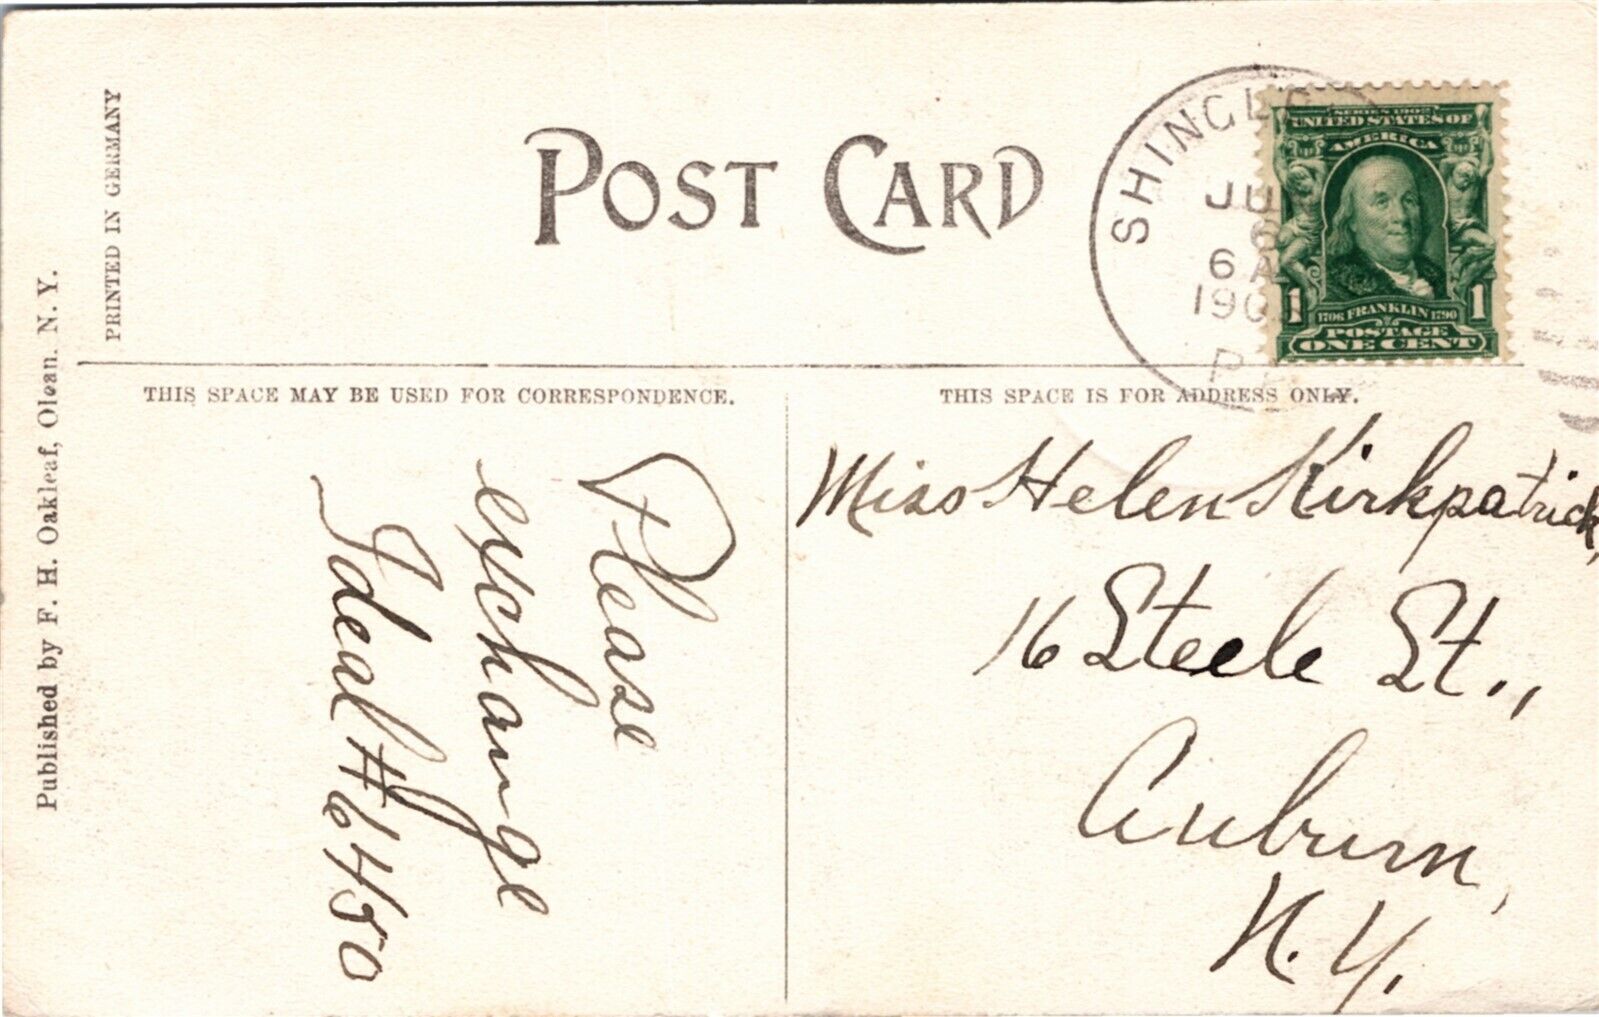 POST CARD
PRINTED IN GERMANY
Published by F. H. Oakleaf, Olean. N. Y.
SERIES 1902
UNITED STATES OF
AMERICA
1 1
1706 FRANKLIN 1790
POSTAGE
ONE CENT
6 A
THIS SPACE MAY BE USED FOR CORRESPONDENCE.
THIS SPACE IS FOR ADDRESS ONLY.
Please
exchange
Ideal #6450
Miss Helen Kirkpatrick,
16 Steele St.,
Auburn,
N.Y.